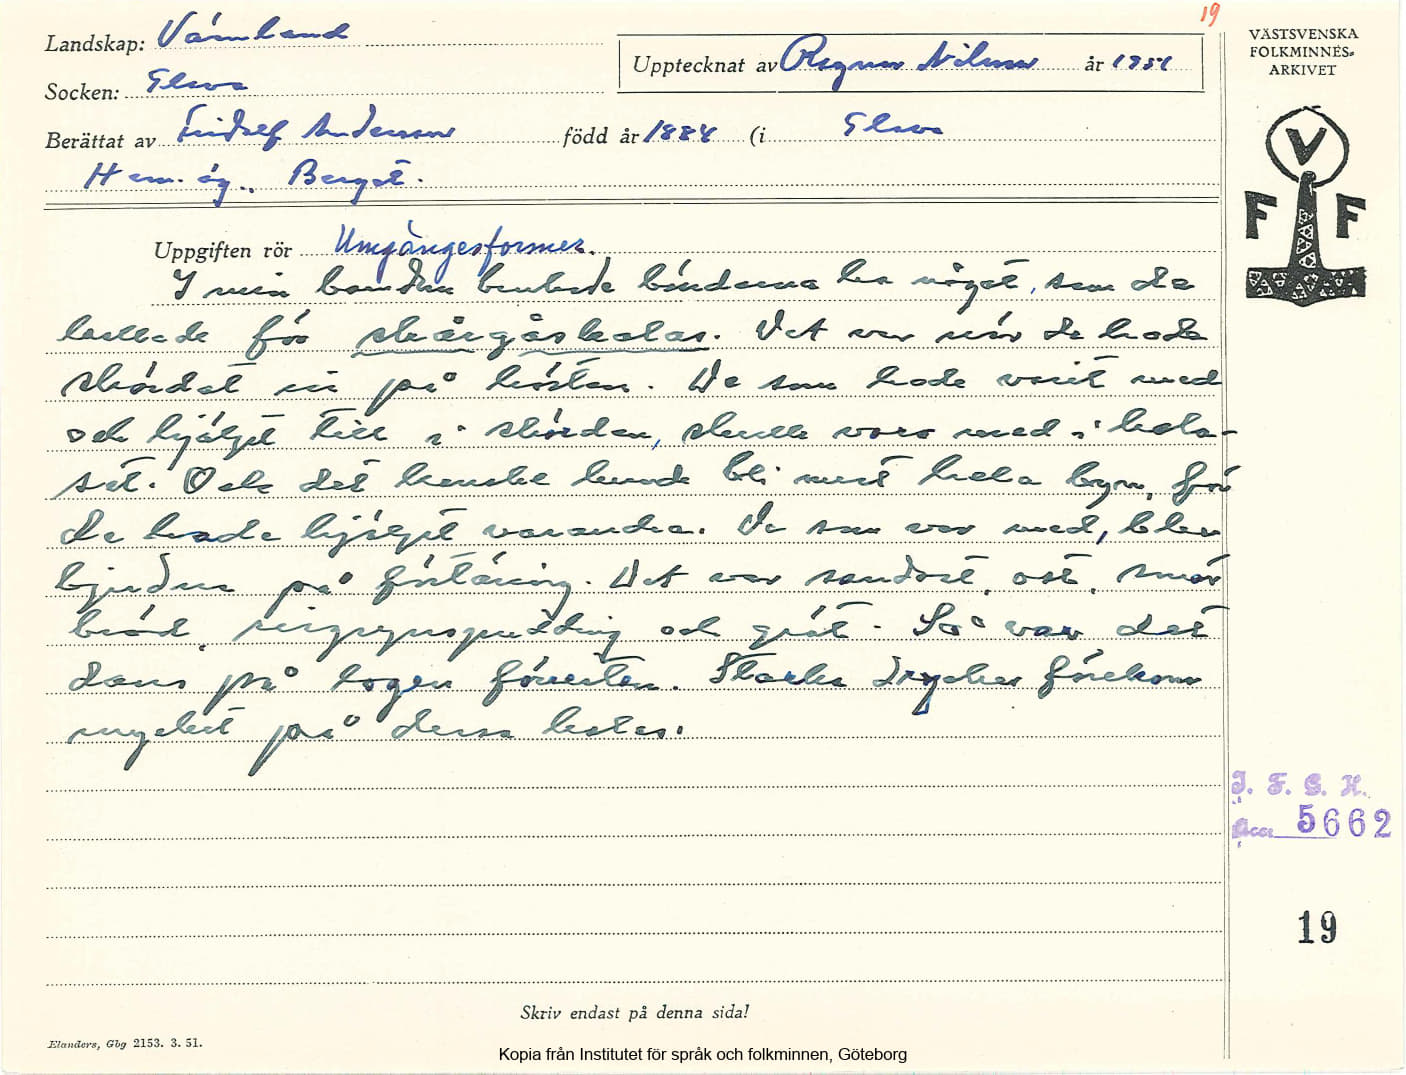 19
Landskap: Värmland
Upptecknat av Ragnar Nilsson år 1951
Socken: Glava
Berättat av Fridolf Andersson född år 1884 (i Glava
Hem. äg.,
Uppgiften rör Umgängesformer.
I min barndom brukade bönderna ha något, som de
kallade för skårgåskalas. Det var när de hade
skördat in på hösten. De som hade varit med
och hjälpt till i skörden, skulle vara med i kala-
set. Och det kanske kunde bli mest hela byn, för
de hade hjälpt varandra. De som var med, blev
bjudna på förtäring. Det var sandost, ost, smör
bröd, risgrynspudding och gröt. Så var det
dans på logen förresten. Starka drycker förekom
mycket på dessa kalas.
VÄSTSVENSKA
FOLKMINNES-
ARKIVET
V
F F
I. F. G. H.
Acc 5662
19
Skriv endast på denna sida!
Elanders, Gbg 2153. 3. 51.
Kopia från Institutet för språk och folkminnen, Göteborg